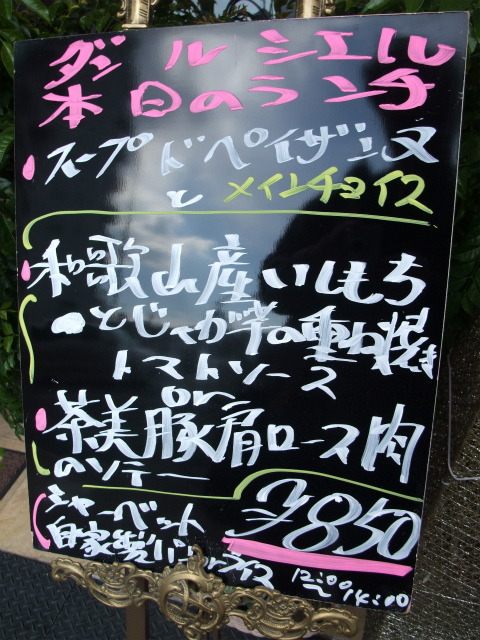 ダン ル シエル
本日のランチ
スープ ド ペイザンヌ
と メインチョイス
和歌山産いしもち
とじゃが芋の重ね焼き
トマトソース
or
茶美豚肩ロース肉
のソテー
シャーベット
自家製パンorライス
¥850
12:00~14:00